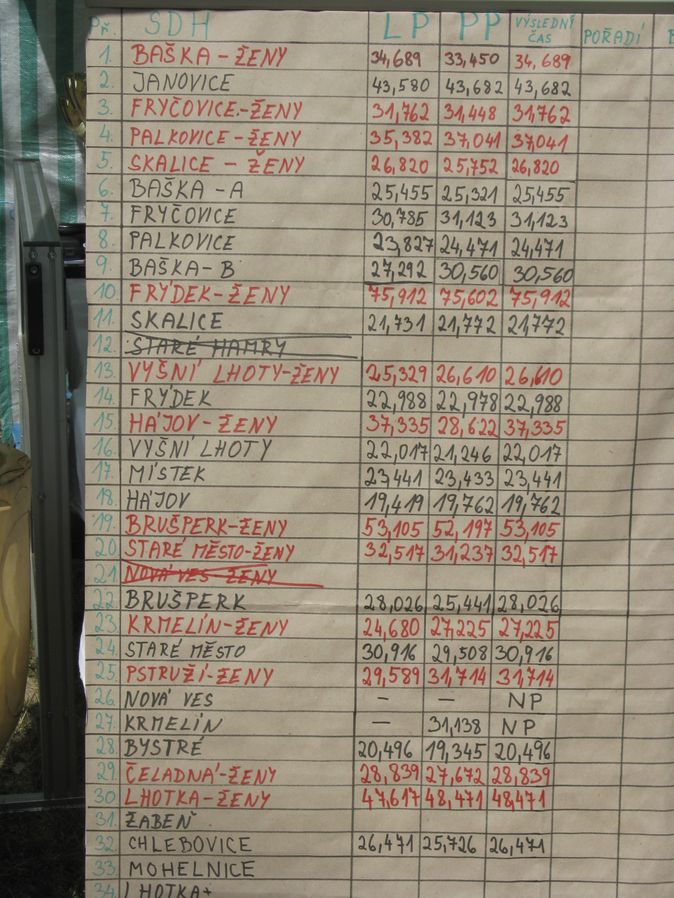 Př. SDH LP PP VÝSLEDNÝ ČAS POŘADÍ
1. BAŠKA-ŽENY 34,689 33,450 34,689
2. JANOVICE 43,580 43,682 43,682
3. FRYČOVICE.-ŽENY 31,762 31,448 31,762
4. PALKOVICE-ŽENY 35,382 37,041 37,041
5. SKALICE - ŽENY 26,820 25,752 26,820
6. BAŠKA-A 25,455 25,321 25,455
7. FRYČOVICE 30,785 31,123 31,123
8. PALKOVICE 23,827 24,471 24,471
9. BAŠKA-B 27,292 30,560 30,560
10. FRÝDEK-ŽENY 75,912 75,602 75,912
11. SKALICE 21,731 21,772 21,772
12. STARÉ HAMRY
13. VYŠNÍ LHOTY-ŽENY 25,329 26,610 26,610
14. FRÝDEK 22,988 22,978 22,988
15. HÁJOV-ŽENY 37,335 28,622 37,335
16. VYŠNÍ LHOTY 22,017 21,246 22,017
17. MÍSTEK 23,441 23,433 23,441
18. HÁJOV 19,419 19,762 19,762
19. BRUŠPERK-ŽENY 53,105 52,197 53,105
20. STARÉ MĚSTO-ŽENY 32,517 31,237 32,517
21. NOVÁ VES-ŽENY
22. BRUŠPERK 28,026 25,441 28,026
23. KRMELÍN-ŽENY 24,680 27,225 27,225
24. STARÉ MĚSTO 30,916 29,508 30,916
25. PSTRUŽÍ-ŽENY 29,589 31,714 31,714
26. NOVÁ VES - - NP
27. KRMELÍN - 31,138 NP
28. BYSTRÉ 20,496 19,345 20,496
29. ČELADNÁ-ŽENY 28,839 27,672 28,839
30. LHOTKA-ŽENY 47,617 48,471 48,471
31. ŽABEŇ
32. CHLEBOVICE 26,471 25,726 26,471
33. MOHELNICE
34. LHOTKA